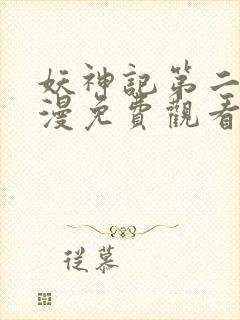 妖神記第二
漫免費觀看
從慕